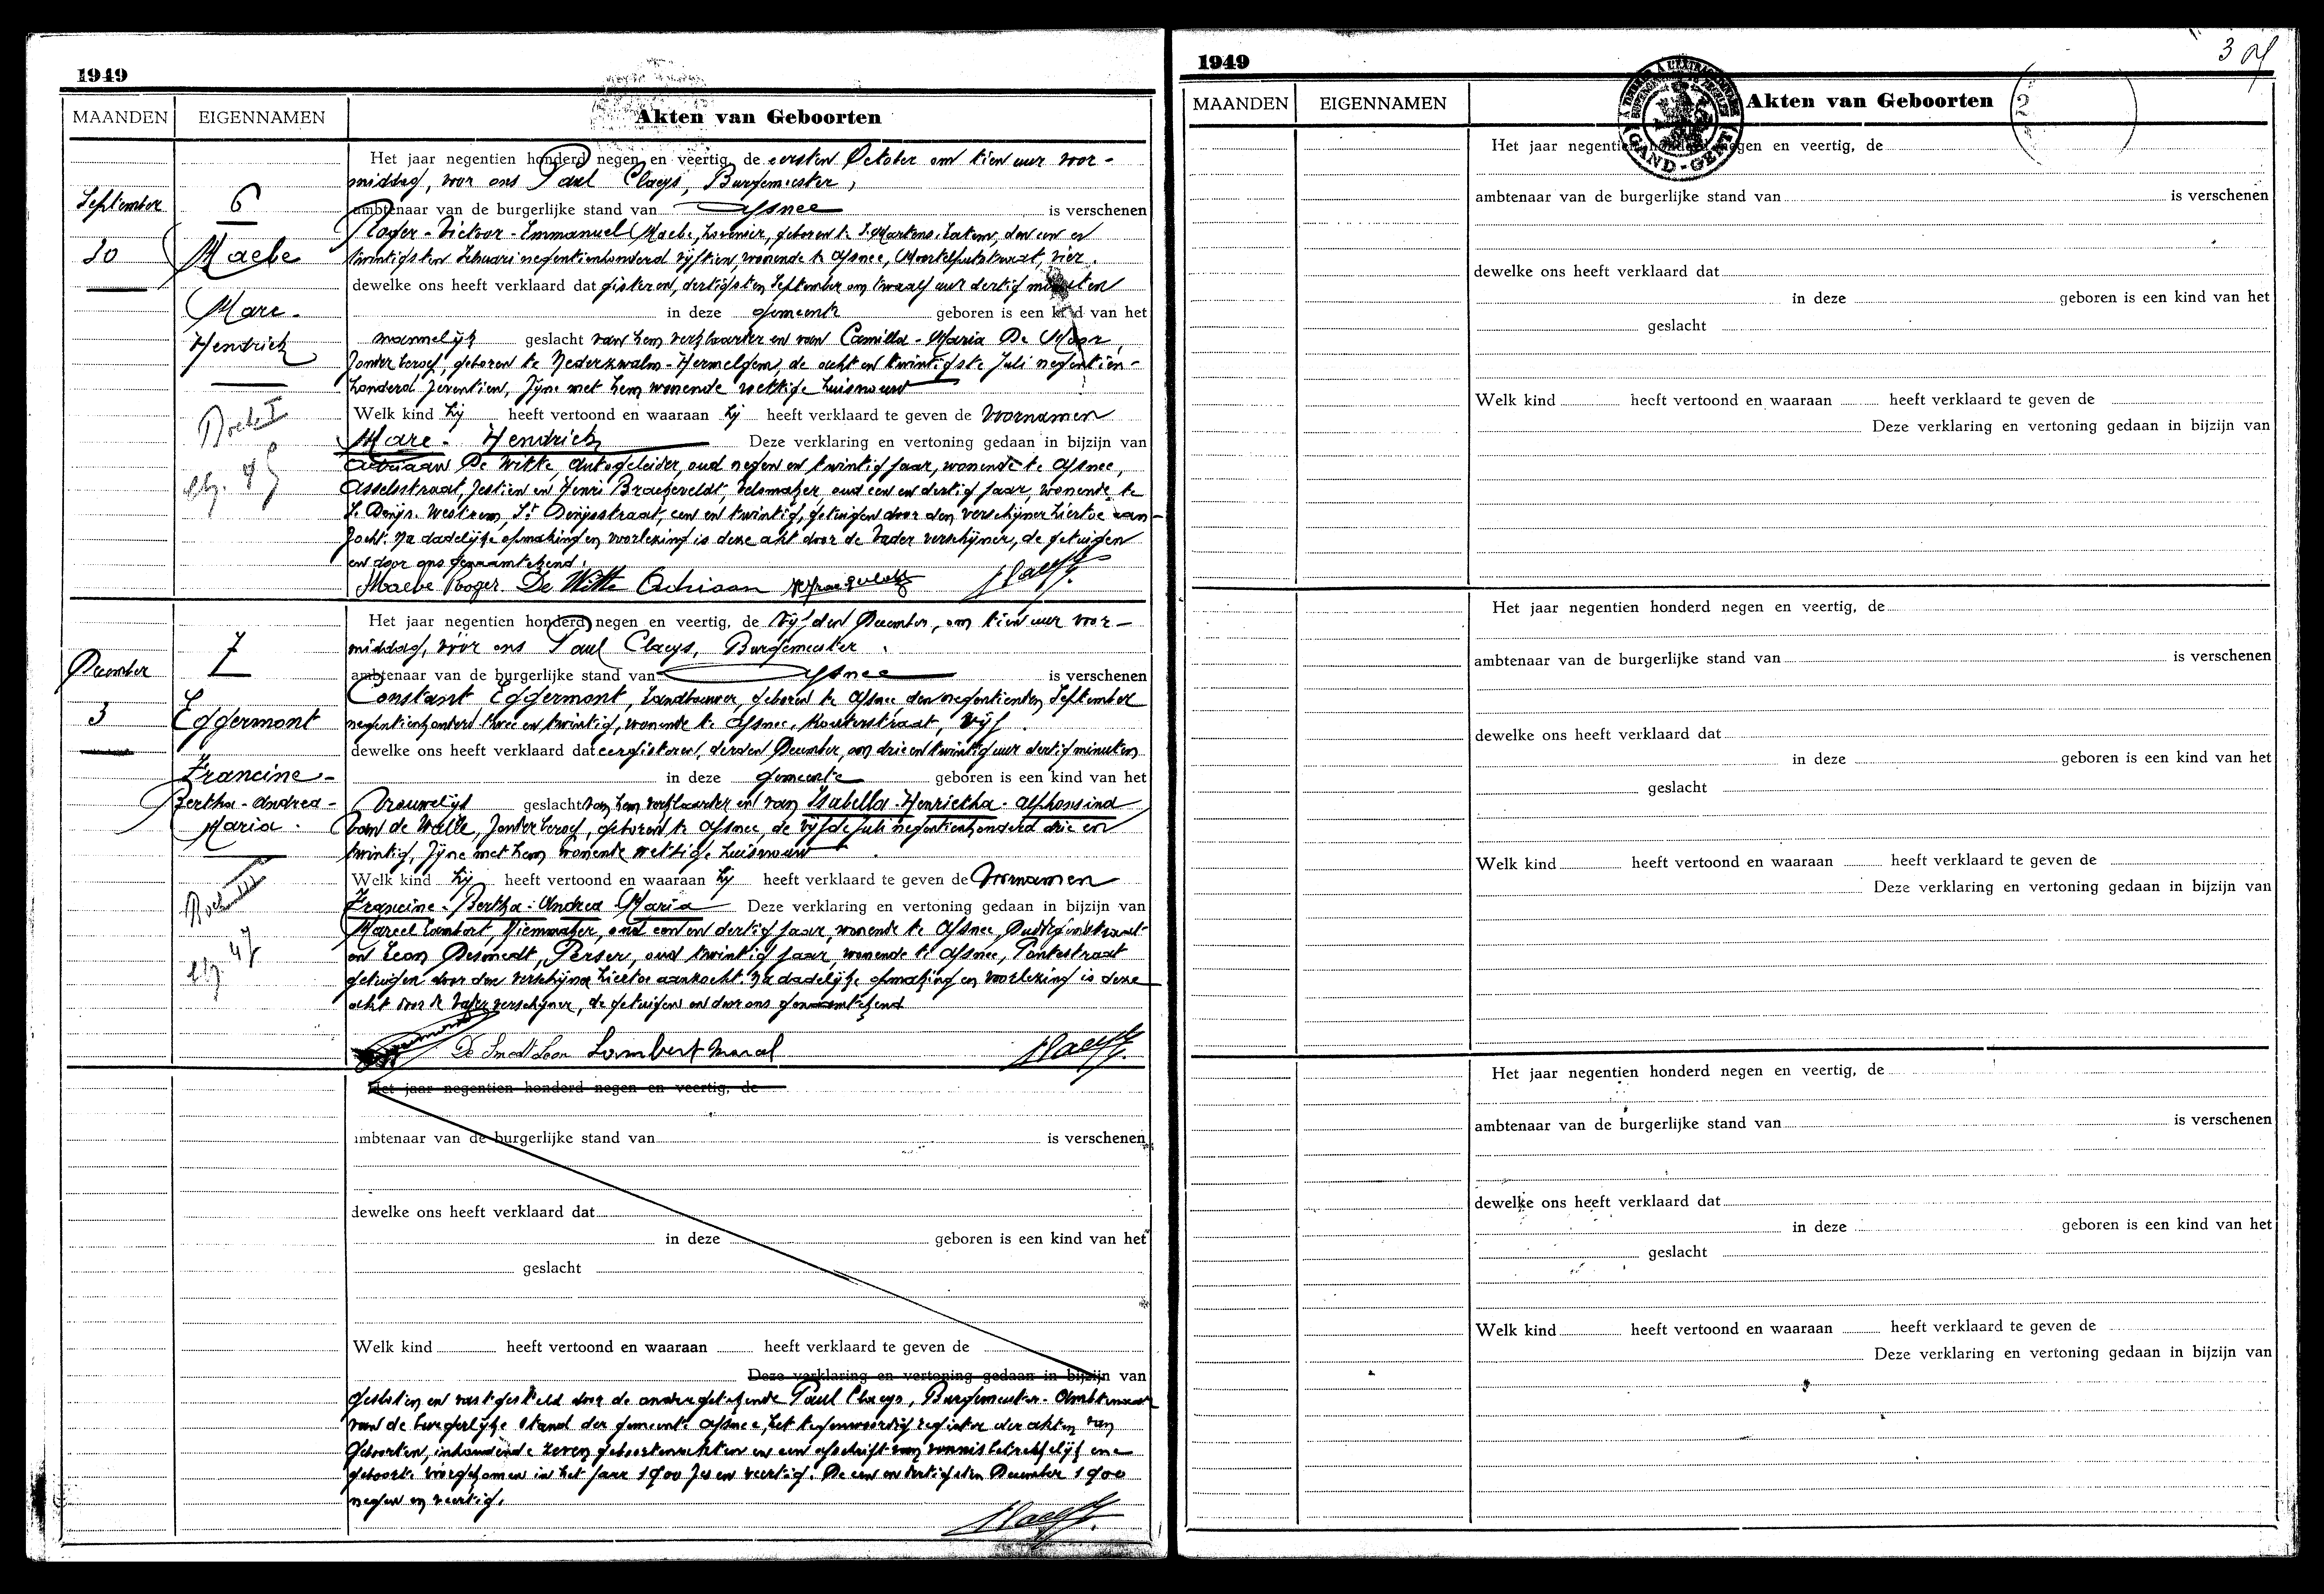 1949
MAANDEN EIGENNAMEN Akten van Geboorten
Het jaar negentien honderd negen en veertig, de eersten October om tien uur voor-
middag, voor ons Paul Claeys, Burgemeester,
September 6 ambtenaar van de burgerlijke stand van Afsnee is verschenen
Roger-Victoor-Emmanuel Maebe, hovenier, geboren te St Martens-Latem, den een en
30 Maebe twintigsten Februari negentienhonderd vijftien, wonende te Afsnee, vier.
dewelke ons heeft verklaard dat gisteren, dertigsten September om twaalf uur dertig minuten
Marc- in deze gemeente geboren is een kind van het
Hendrick mannelijk geslacht van hem verklaarder en van Camilla-Maria De Moor,
zonder beroep, geboren te Nederzwalm-Hermelgem, de acht en twintigste Juli negentien-
honderd zeventien, zijne met hem wonende wettige huisvrouw
Welk kind hij heeft vertoond en waaraan hij heeft verklaard te geven de voornamen
Marc- Hendrick Deze verklaring en vertoning gedaan in bijzijn van
Adriaan De Witte, autogeleider, oud negen en twintig jaar, wonende te Afsnee,
Asselsstraat, zestien en Henri Braekeveldt, oud een en dertig jaar, wonende te
St Denijs-Westrem, St Denijsstraat, een en twintig, getuigen door den verschijner hiertoe aan-
zocht. Na dadelijke opmaking en voorlezing is deze akt door de Vader verschijner, de getuigen
en door ons genaamtekend.
Maebe Roger De Witte Adriaan
Het jaar negentien honderd negen en veertig, de vijfden December, om tien uur voor-
middag, voor ons Paul Claeys, Burgemeester.
December 7 ambtenaar van de burgerlijke stand van Afsnee is verschenen
Constant Eggermont, Landbouwer, geboren te Afsnee den negentienden September
3 Eggermont negentienhonderd twee en twintig, wonende te Afsnee, Kouterstraat, vijf.
dewelke ons heeft verklaard dat eergisteren, derden December, om drie en twintig uur dertig minuten
Francine- in deze gemeente geboren is een kind van het
Bertha-Andrea- Vrouwelijk geslacht van hem verklaarder en van Isabella-Henrietha-Alphonsina
Maria. Van de Walle, zonder beroep, geboren te Afsnee, de vijfde Juli negentienhonderd drie en
twintig, zijne met hem wonende wettige huisvrouw.
Welk kind hij heeft vertoond en waaraan hij heeft verklaard te geven de Voornamen
Francine-Bertha-Andrea Maria Deze verklaring en vertoning gedaan in bijzijn van
Marcel Lambert, Riemmaker, oud een en dertig jaar, wonende te Afsnee
en Leon Desmedt, Perser, oud twintig jaar, wonende te Afsnee, Pontestraat
getuigen door den verschijner hiertoe aanzocht. Na dadelijke opmaking en voorlezing is deze
akt door de Vader verschijner, de getuigen en door ons genaamtekend
De Smedt Leon Lambert Marcel
Het jaar negentien honderd negen en veertig, de
ambtenaar van de burgerlijke stand van is verschenen
dewelke ons heeft verklaard dat
in deze geboren is een kind van het
geslacht
Welk kind heeft vertoond en waaraan heeft verklaard te geven de
Deze verklaring en vertoning gedaan in bijzijn van
Gesloten en vastgesteld door de ondergetekende Paul Claeys, Burgemeester-Ambtenaar
van de burgerlijke stand der gemeente Afsnee, het tegenwoordig register der akten van
Geboorten, inhoudende zeven geboortenakten en een afschrift van vonnis betrekkelijk ene
geboorte voorgekomen in het jaar 1900 zes en veertig. De een en dertigsten December 1900
negen en veertig.
1949
MAANDEN EIGENNAMEN Akten van Geboorten
GAND-GENT
Het jaar negentien honderd negen en veertig, de
ambtenaar van de burgerlijke stand van is verschenen
dewelke ons heeft verklaard dat
in deze geboren is een kind van het
geslacht
Welk kind heeft vertoond en waaraan heeft verklaard te geven de
Deze verklaring en vertoning gedaan in bijzijn van
Het jaar negentien honderd negen en veertig, de
ambtenaar van de burgerlijke stand van is verschenen
dewelke ons heeft verklaard dat
in deze geboren is een kind van het
geslacht
Welk kind heeft vertoond en waaraan heeft verklaard te geven de
Deze verklaring en vertoning gedaan in bijzijn van
Het jaar negentien honderd negen en veertig, de
ambtenaar van de burgerlijke stand van is verschenen
dewelke ons heeft verklaard dat
in deze geboren is een kind van het
geslacht
Welk kind heeft vertoond en waaraan heeft verklaard te geven de
Deze verklaring en vertoning gedaan in bijzijn van